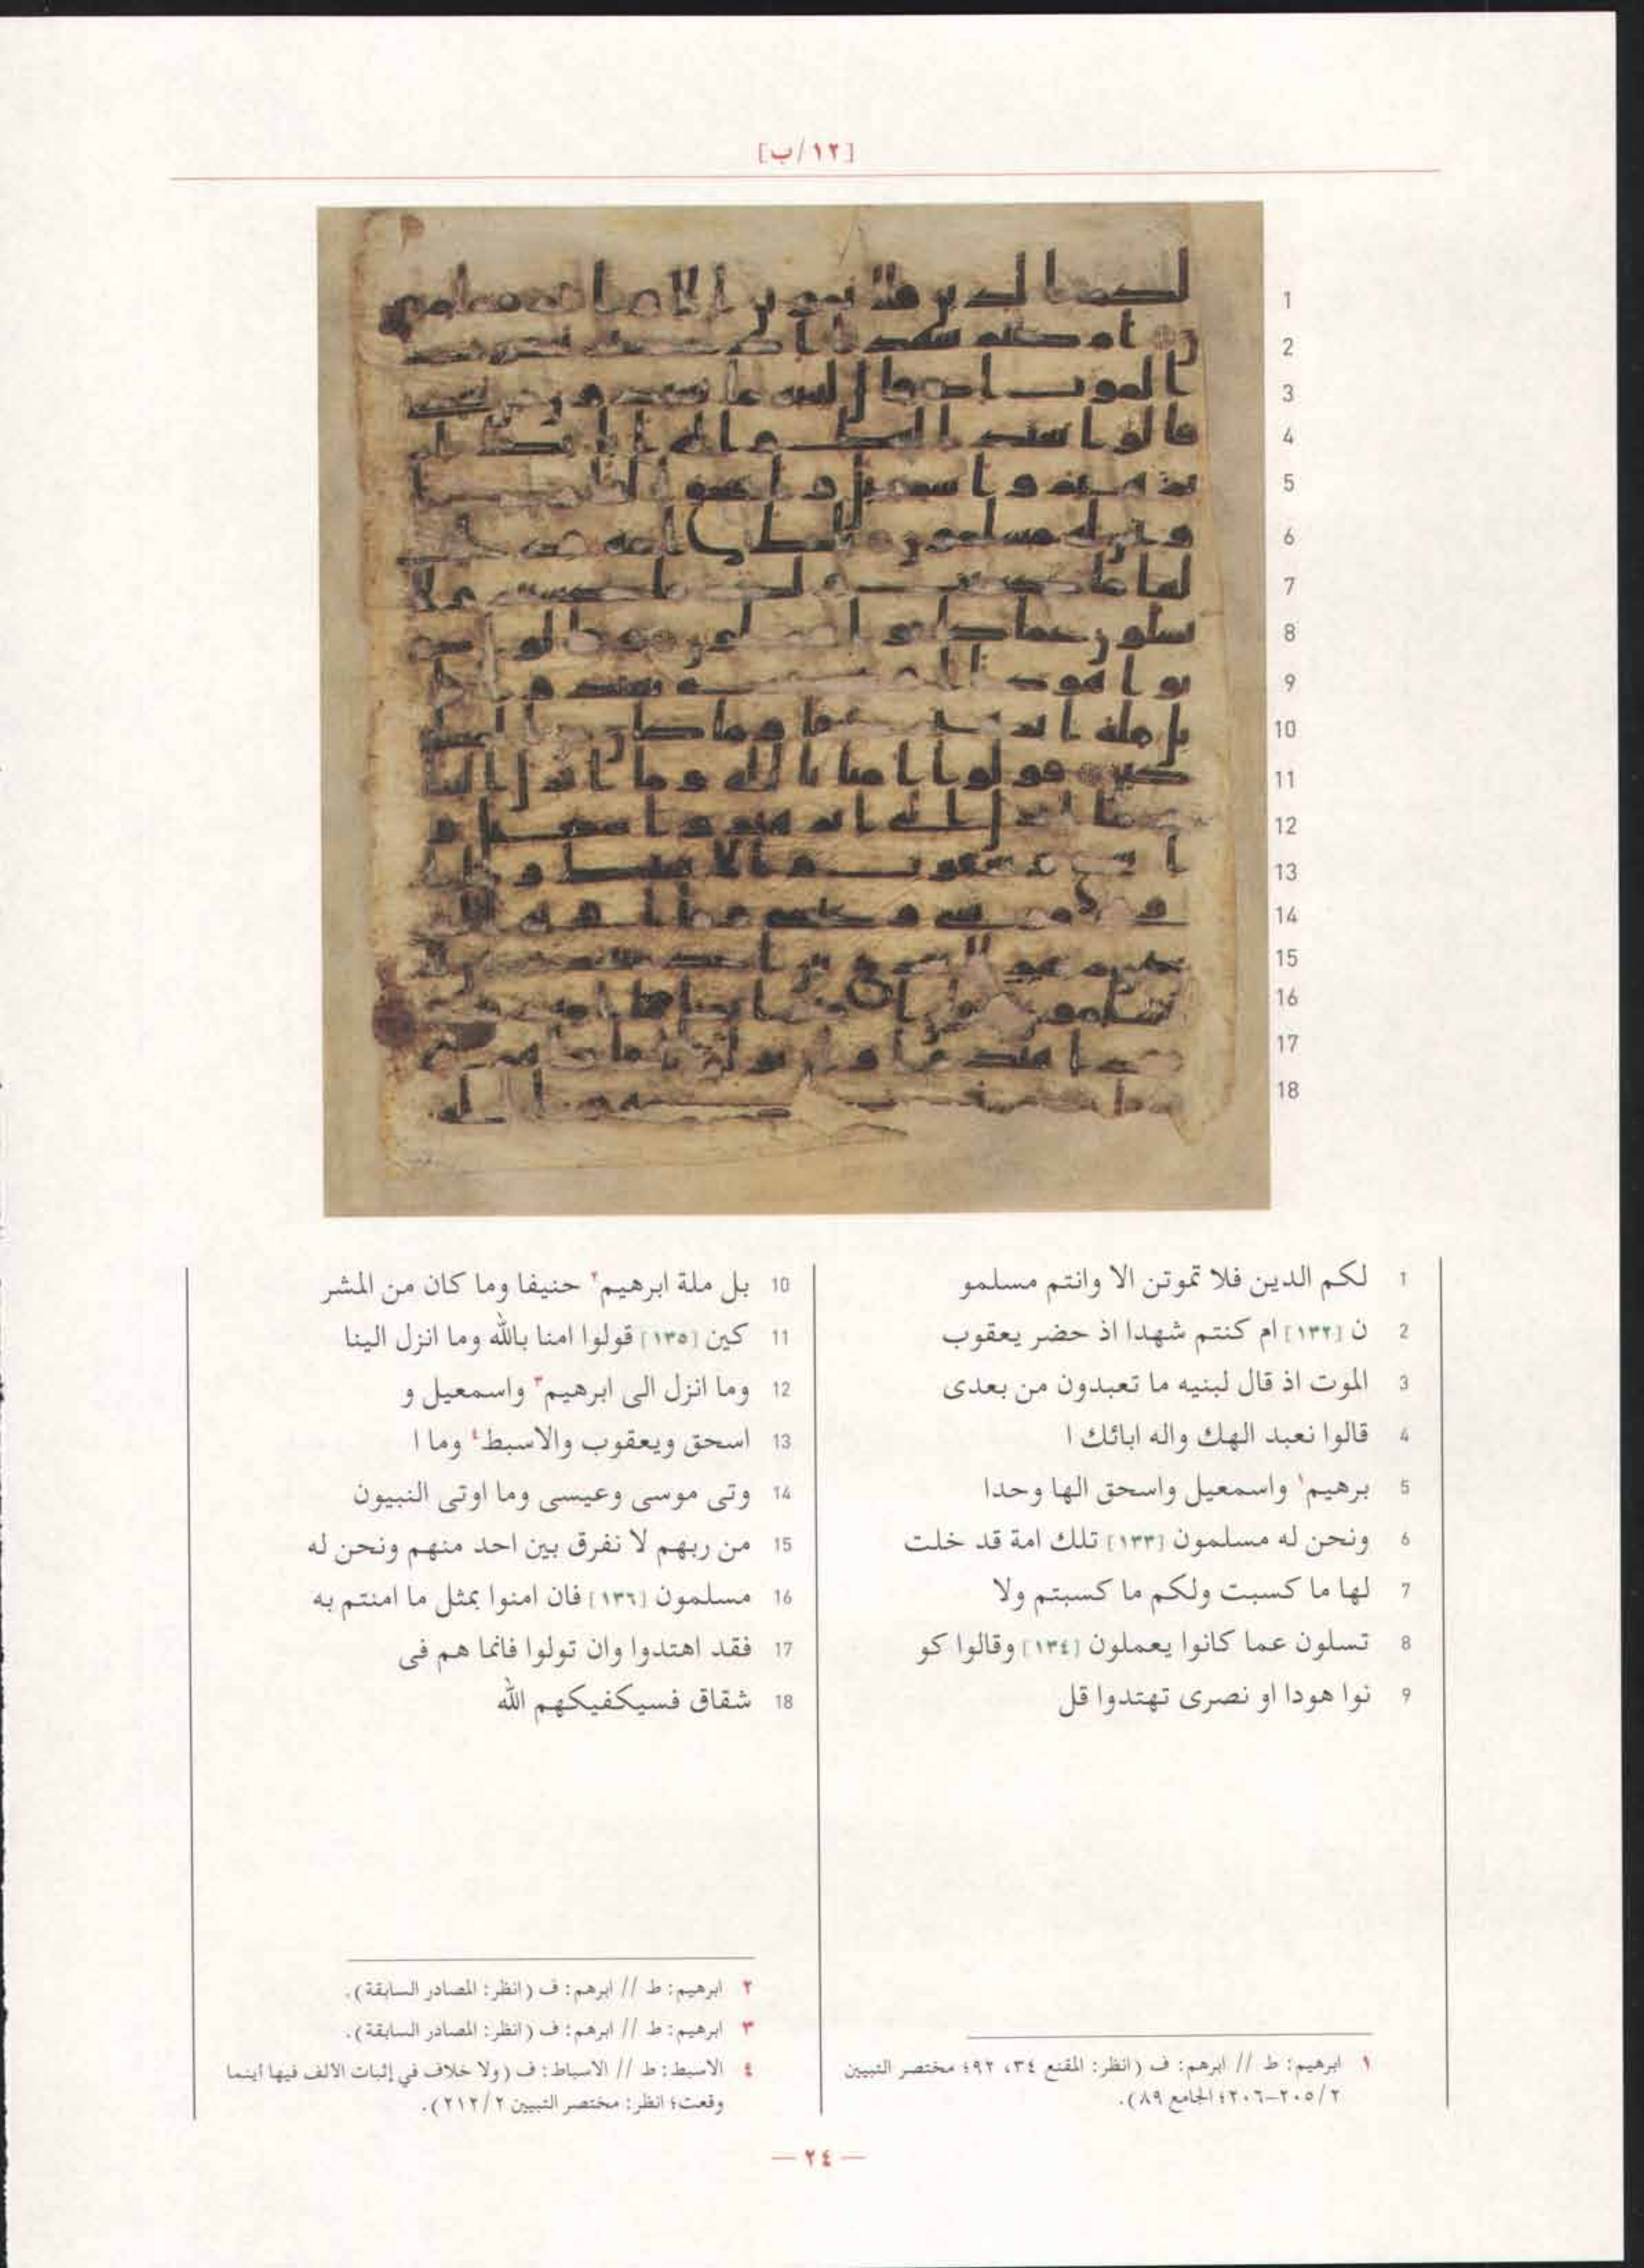 [١٢/ب]
1 لكم الدين فلا تموتن الا وانتم مسلمو
2 ن [١٣٢] ام كنتم شهدا اذ حضر يعقوب
3 الموت اذ قال لبنيه ما تعبدون من بعدى
4 قالوا نعبد الهك واله ابائك ا
5 برهيم١ واسمعيل واسحق الها وحدا
6 ونحن له مسلمون [١٣٣] تلك امة قد خلت
7 لها ما كسبت ولكم ما كسبتم ولا
8 تسلون عما كانوا يعملون [١٣٤] وقالوا كو
9 نوا هودا او نصرى تهتدوا قل
10 بل ملة ابرهيم٢ حنيفا وما كان من المشر
11 كين [١٣٥] قولوا امنا بالله وما انزل الينا
12 وما انزل الى ابرهيم٣ واسمعيل و
13 اسحق ويعقوب والاسبط٤ وما ا
14 وتى موسى وعيسى وما اوتى النبيون
15 من ربهم لا نفرق بين احد منهم ونحن له
16 مسلمون [١٣٦] فان امنوا بمثل ما امنتم به
17 فقد اهتدوا وان تولوا فانما هم فى
18 شقاق فسيكفيكهم الله
١ ابرهيم: ط // ابرهم: ف (انظر: المقنع ٣٤، ٩٢؛ مختصر التبيين
٢/٢٠٥–٢٠٦؛ الجامع ٨٩).
٢ ابرهيم: ط // ابرهم: ف (انظر: المصادر السابقة).
٣ ابرهيم: ط // ابرهم: ف (انظر: المصادر السابقة).
٤ الاسبط: ط // الاسباط: ف (ولا خلاف في إثبات الالف فيها أينما
وقعت؛ انظر: مختصر التبيين ٢/٢١٢).
— ٢٤ —